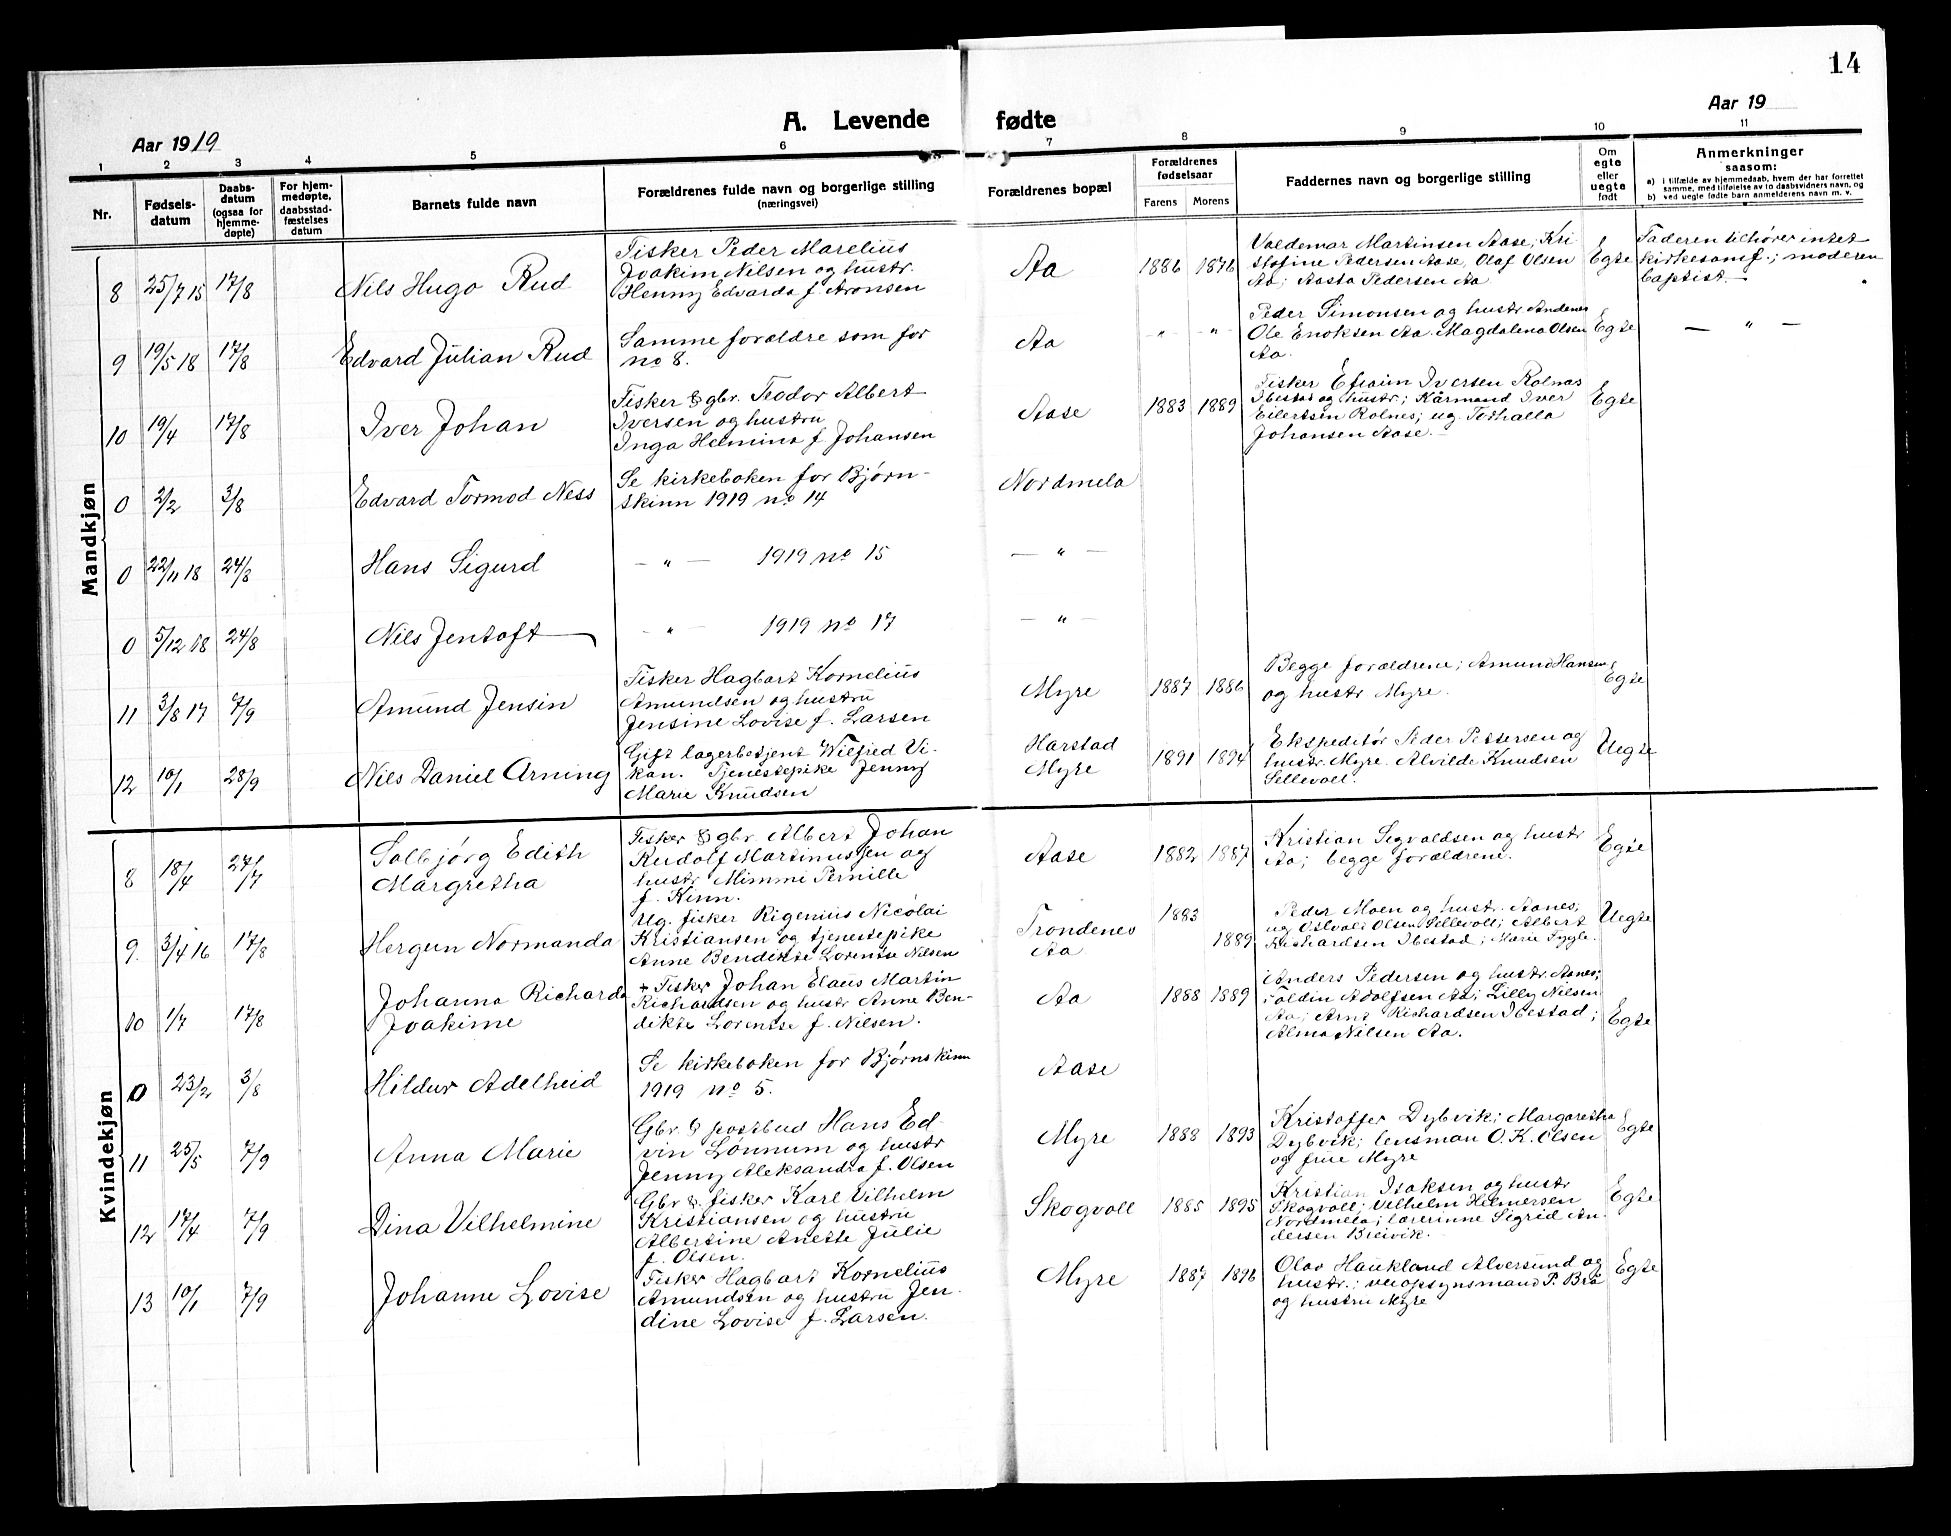 14
Aar 1919
A. Levende fødte
Aar 19
1 2 3 4 5 6 7 8 9 10 11
Nr.
Fødsels-
datum
Daabs-
datum
(ogsaa for
hjemme-
døpte)
For hjem-
medøpte,
daabsstad-
fæstelses
datum
Barnets fulde navn
Forældrenes fulde navn og borgerlige stilling
(næringsvei)
Forældrenes bopæl
Forældrenes
fødselsaar
Farens Morens
Faddernes navn og borgerlige stilling
Om
egte
eller
uegte
født
Anmerkninger
saasom:
a) i tilfælde av hjemmedaab, hvem der har forrettet
samme, med tilføielse av to daabsvidners navn, og
b) ved uegte fødte barn anmelderens navn m. v.
Mandkjøn
8 25/7 15 17/8
Nils Hugo Rud
Fisker Peder Marelius
Joakim Nilsen og hustr.
Henny Edvarda f. Aronsen
Aa
1886 1876
Valdemar Martinsen Aase; Kri
stofine Pedersen Aase, Olaf Olsen
Aa; Aasta Pedersen Aa
Egte
Faderen tilhører intet
kirkesamf.; moderen
baptist.
9 19/5 18 17/8
Edvard Julian Rud
Samme forældre som for
no 8.
Aa
" "
Peder Simonsen og hustr Andenes
Ole Enoksen Aa. Magdalena Olsen
Aa.
Egte
— " —
10 19/4 17/8
Iver Johan
Fisker & gbr. Teodor Albert
Iversen og hustru
Inga Helmina f. Johansen
Aase
1883 1889
Fisker Efraim Iversen Rolnæs
Ibestad og hustr; Kårmand Iver
Eilertsen Rolnes; ug. Torhalla
Johansen Aase.
Egte
0 2/2 3/8
Edvard Tormod Ness
Se kirkeboken for Bjørn-
skinn 1919 no 14
Nordmela
0 22/11 18 24/8
Hans Sigurd
— " — 1919 no 15
— " —
0 5/12 18 24/8
Nils Jentoft
— " — 1919 no 17
— " —
11 3/8 17 7/9
Amund Jensin
Fisker Hagbart Kornelius
Amundsen og hustru
Jensine Lovise f. Larsen
Myre
1887 1886
Begge forældrene; Amund Hansen
og hustr Myre.
Egte
12 10/1 28/9
Nils Daniel Arning
Gift lagerbetjent Wilfred Vi-
kan. Tjenestepike Jenny
Marie Knudsen
Harstad
Myre
1891 1894
Ekspeditør Peder Pettersen og
hustr. Myre. Alvilde Knudsen
Sellevoll.
Uegte
Kvindekjøn
8 18/4 27/7
Solbjørg Edith
Margretha
Fisker & gbr. Albert Johan
Rudolf Martinussen og
hustr Mimmi Pernille
f. Kinn.
Aase
1882 1887
Kristian Sigvaldsen og hustr
Aa; begge forældrene.
Egte
9. 3/4 16 17/8
Hergun Normanda
Ug. fisker Rigenius Nicolai
Kristiansen og tjenestepike
Anne Bendikte Lorentse Nilsen
Trondenes
Aa
1883
1889
Peder Moen og hustr. Aanes;
ug Olsen Sellevoll; Albert
Richardsen Ibestad; Marie Tygle.
Uegte
10 1/7 17/8
Johanna Richarda
Joakime
+ Fisker Johan Elaus Martin
Richardsen og hustr Anne Ben-
dikte Lorentse f. Nilsen.
Aa
1888 1889
Anders Pedersen og hustr. Aanes;
Adolfsen Aa; Lilly Nilsen
Aa; Arnt Richardsen Ibestad;
Alma Nilsen Aa.
Egte
0 23/2 3/8
Hildur Adelheid
Se kirkeboken for Bjørnskinn
1919 no 5.
Aase
11 25/5 7/9
Anna Marie
Gbr. & postbud Hans Ed-
vin Lønnum og hustr
Jenny Aleksandra f. Olsen
Myre
1888 1893
Kristoffer Dybvik; Margaretha
Dybvik; lensman O. K. Olsen
og frue Myre
Egte
12 17/4 7/9
Dina Vilhelmine
Gbr & fisker Karl Vilhelm
Kristiansen og hustru
Albertine Anette Julie
f. Olsen.
Skogvoll
1885 1895
Kristian Isaksen og hustr
Skogvoll; Vilhelm Helmersen
Nordmela; lærerinne Sigrid An
dersen Bleivik.
Egte
13 10/1 7/9
Johanne Lovise
Fisker Hagbart Kornelius
Amundsen og hustru Jen-
dine Lovise f. Larsen.
Myre
1887 1896
Olav Haukland Alversund og
hustr.; veiopsynsmand P. Bre
og hustru Myre
Egte